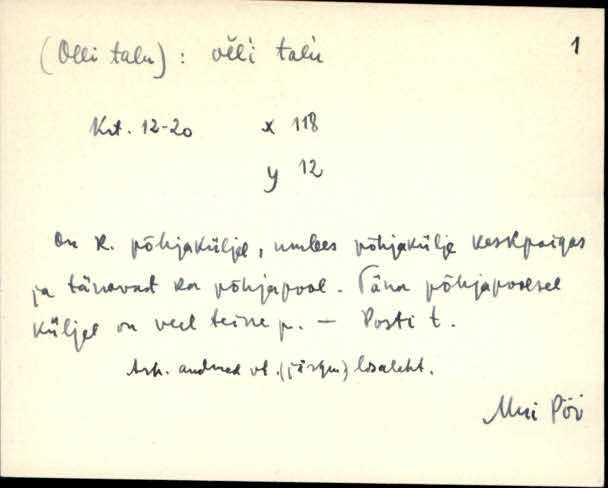 1
(Olli talu) : olli talu
Krt. 12-20 x 118
y 12
On k. põhjaküljel, umbes põhjakülje keskpaigas
ja tänavast ka põhjapool. Täna põhjapoolsel
küljel on veel teine p. — Posti t.
Ark. andmed vt. (järgm) lisaleht.